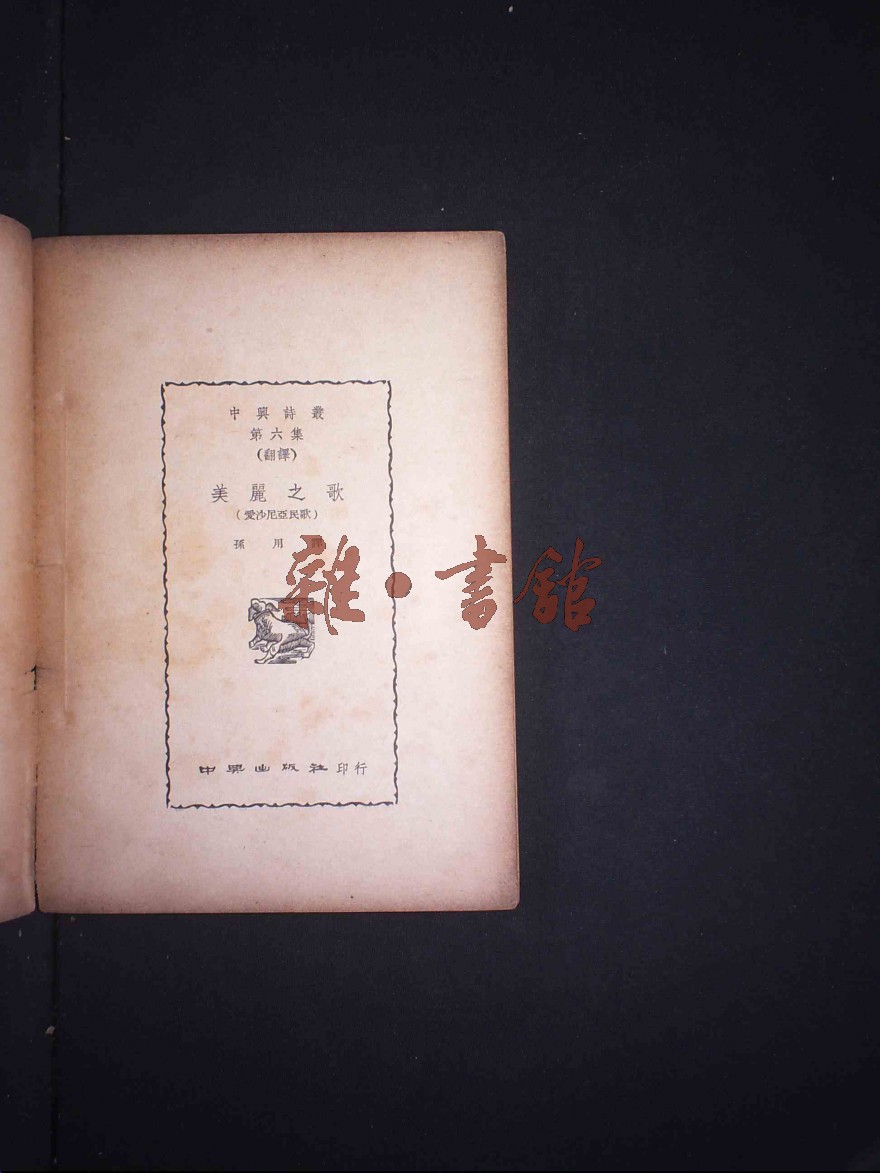 中興詩叢
第六集
(翻譯)
美麗之歌
(愛沙尼亞民歌)
孫用譯
雜·書館
中興出版社印行